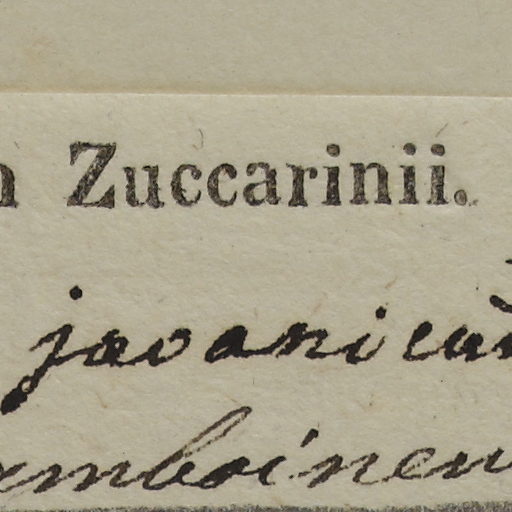 n Zuccarinii.
javanicu
mboinen